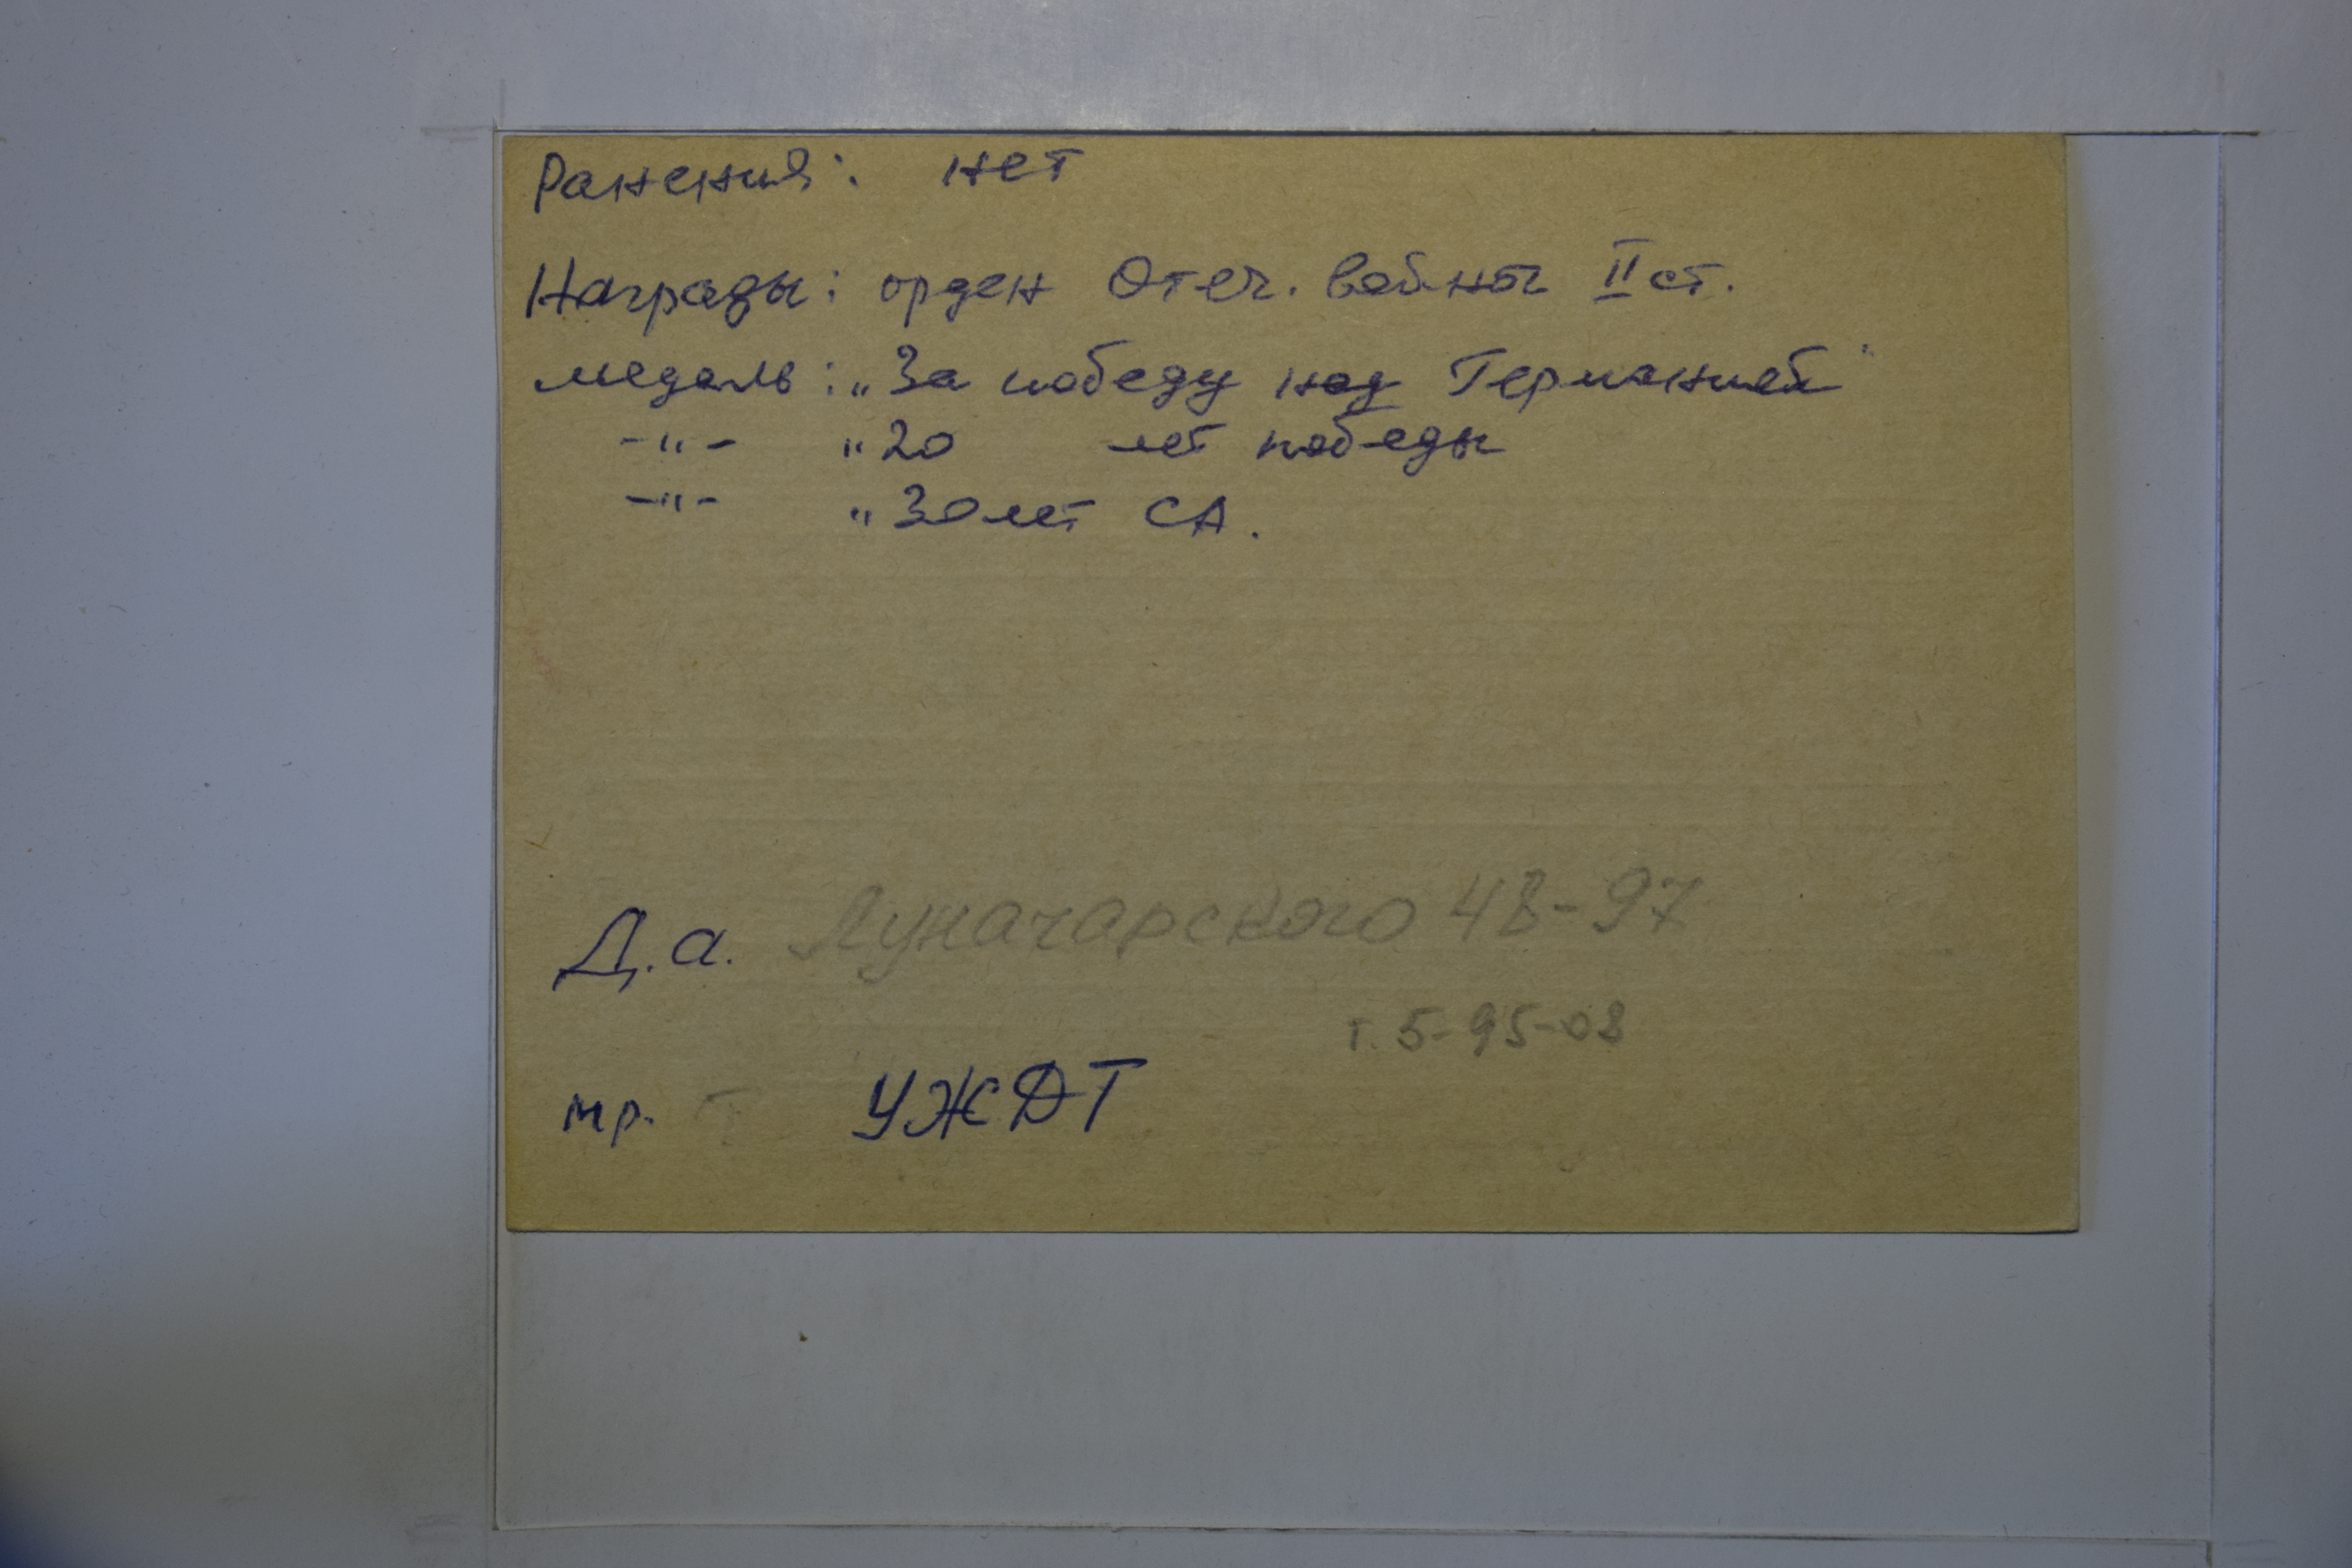 Ранения: нет
Награды: орден Отеч. войны II ст.
медаль: „За победу над Германией"
-"- „20 лет победы
-"- „30 лет СА.
Д.а. Луначарского 48-97
т. 5-95-08
мр. УЖДТ